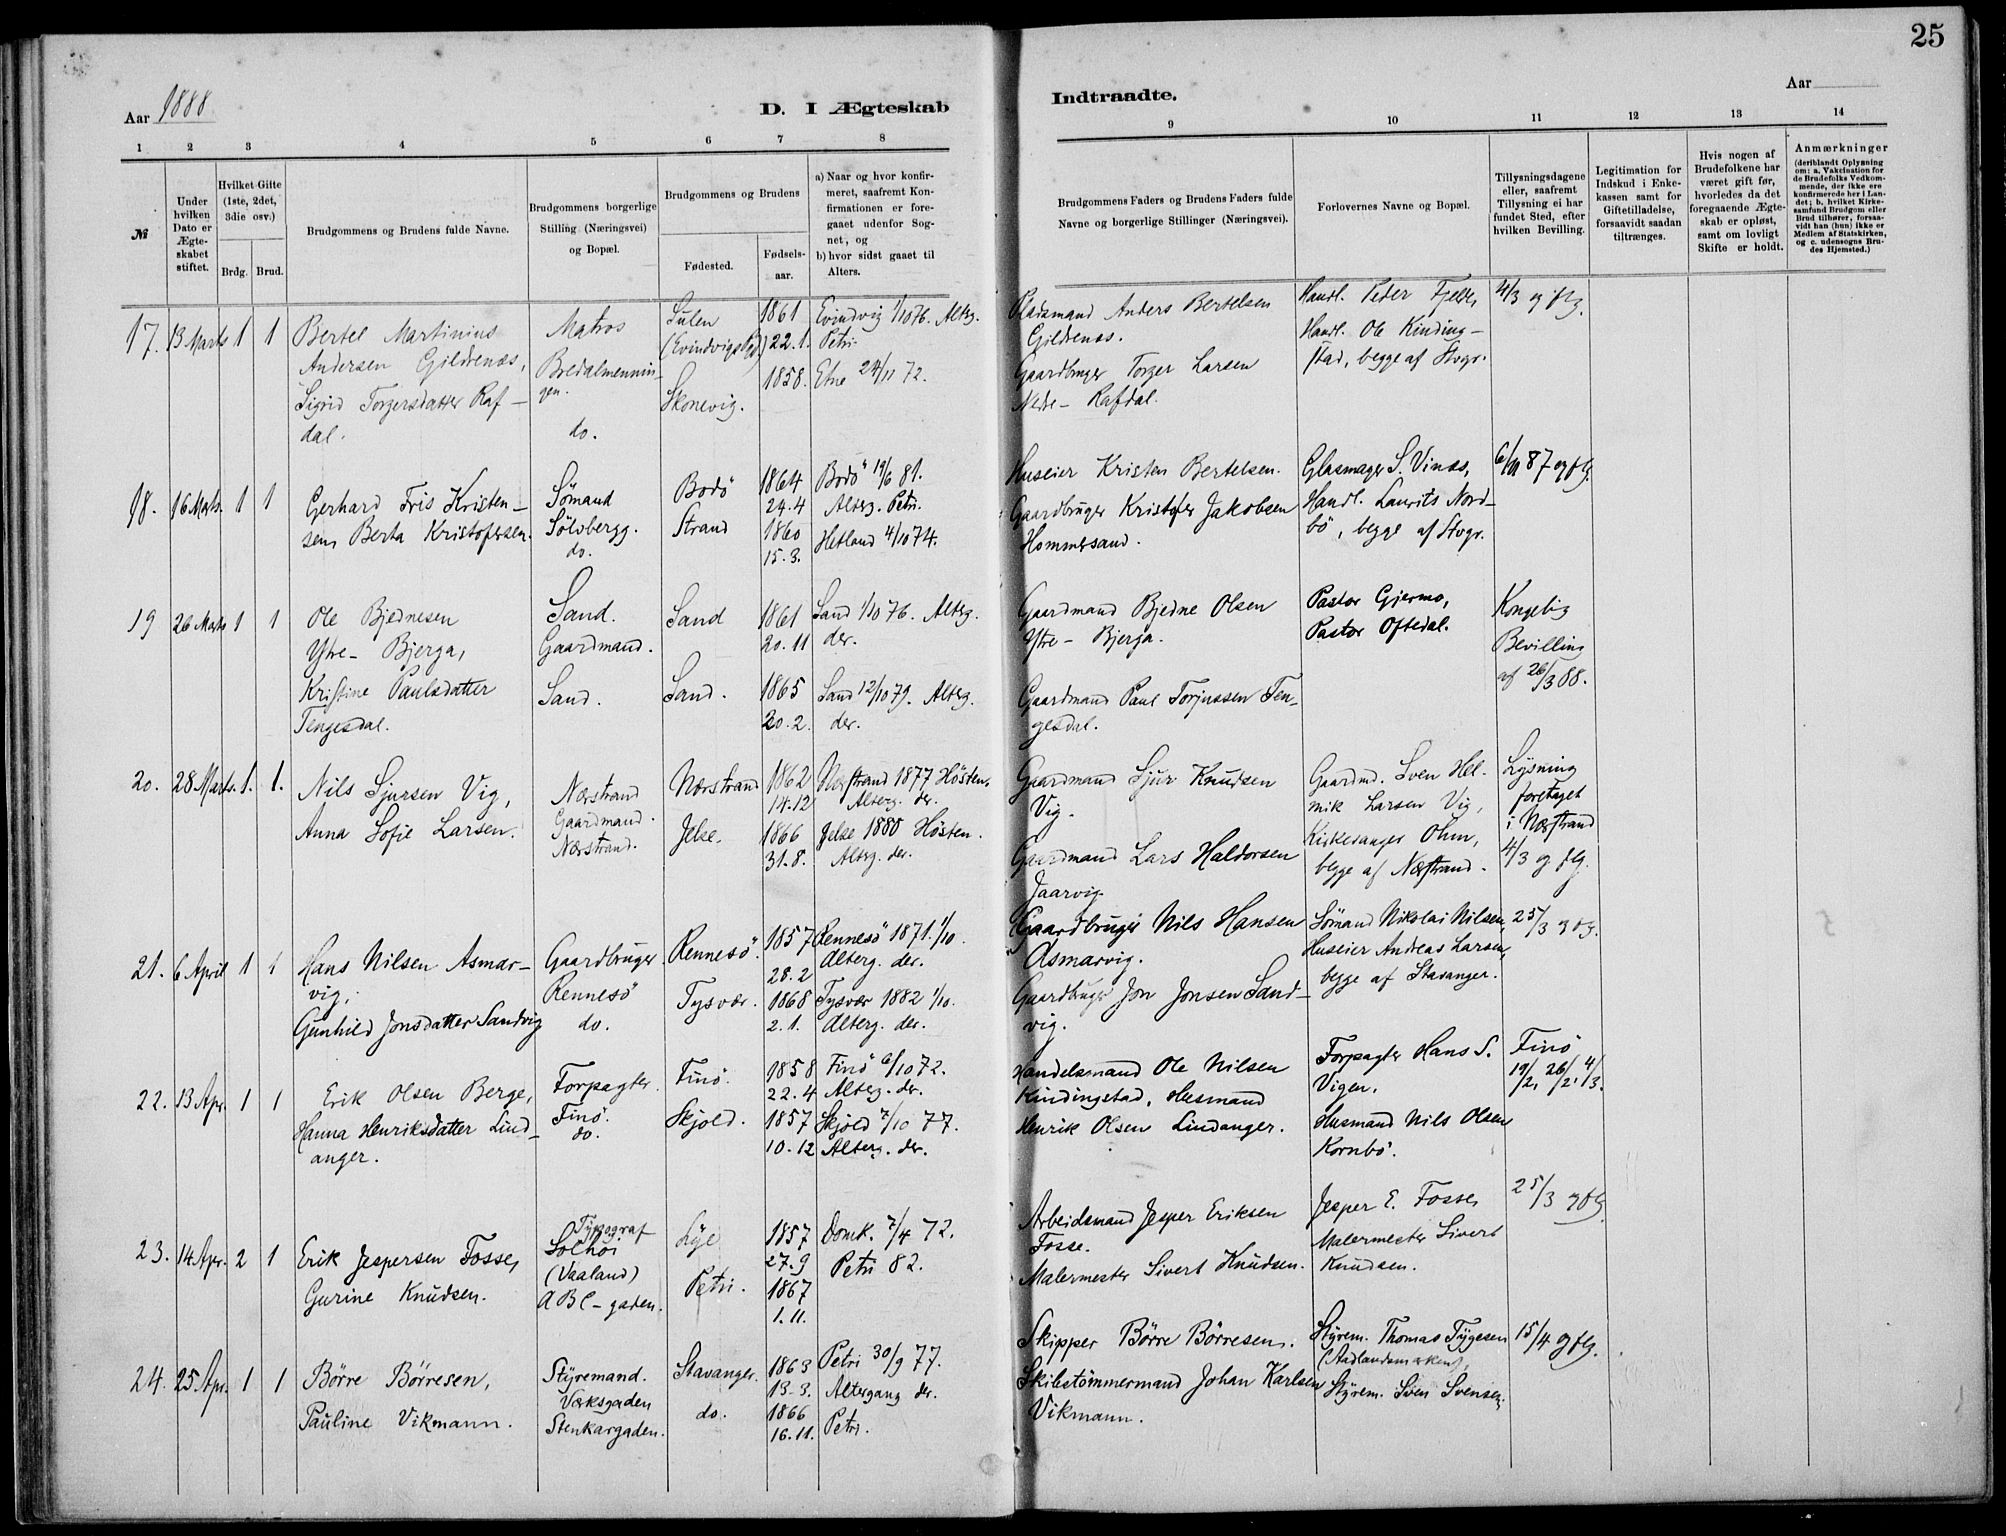 25
Aar 1888
D. I Ægteskab
Indtraadte.
Aar
1 2 3 4 5 6 7 8 9 10 11 12 13 14
№
Under hvilken Dato er Ægteskabet stiftet.
Hvilket Gifte (1ste, 2det, 3die osv.)
Brdg. Brud.
Brudgommens og Brudens fulde Navne.
Brudgommens borgerlige Stilling (Næringsvei) og Bopæl.
Brudgommens og Brudens
Fødested.
Fødselsaar.
a) Naar og hvor konfirmeret, saafremt Konfirmationen er foregaaet udenfor Sognet, og
b) hvor sidst gaaet til Alters.
Brudgommens Faders og Brudens Faders fulde Navne og borgerlige Stillinger (Næringsvei).
Forlovernes Navne og Bopæl.
Tillysningsdagene eller, saafremt Tillysning ei har fundet Sted, efter hvilken Bevilling.
Legitimation for Indskud i Enkekassen samt for Giftetilladelse, forsaavidt saadan tiltrænges.
Hvis nogen af Brudefolkene har været gift før, hvorledes da det foregaaende Ægteskab er opløst, samt om lovligt Skifte er holdt.
Anmærkninger
(deriblandt Oplysning om: a. Vakcination for de Brudefolks Vedkommende, der ikke ere konfirmerede her i Landet; b. hvilket Kirkesamfund Brudgom eller Brud tilhører, forsaavidt han (hun) ikke er Medlem af Statskirken, og c. udensogns Brudes Hjemsted.)
17. 13 Marts 1 1
Bertel Martinius
Andersen Gildrenæs,
Sigrid Torgersdatter Raf-
dal.
Matros
Bredalmennin-
gen.
do.
Sulen
(Evindvigs Pgd)
Skonevig.
1861
22.1.
1858.
Evindvig 1/10 76. Alterg.
Petri.
Etne 24/11 72.
Pladsmand Anders Bertelsen
Gildrenæs.
Gaardbruger Torger Larsen
Nedre- Rafdal.
Handl. Peder Fjelde,
Handl. Ole Kinding-
stad, begge af Stvgr.
4/3 og flg.
18. 16 Marts. 1 1
Gerhard Fris Kristen-
sen, Berta Kristofersen.
Sømand
Sølvbergg.
do.
Bodø
Strand
1864
24.4
1860
15.3.
Bodø 19/6 81.
Alterg. Petri.
Hetland 4/10 74.
Huseier Kristen Bertelsen.
Gaardbruger Kristofer Jakobsen
Hommersand.
Glasmager S. Vinæs,
Handl. Laurits Nord-
bø, begge af Stvgr.
6/11 87 og flg.
19 26 Marts 1 1
Ole Bjednesen
Ytre- Bjerga,
Kristine Paulsdatter
Tengesdal.
Sand.
Gaardmand.
Sand.
Sand
Sand.
1861
20.11
1865
20.2.
Sand 1/10 76. Alterg.
der.
Sand 12/10 79. Alterg.
der.
Gaardmand Bjedne Olsen
Ytre- Bjerga.
Gaardmand Paul Torjussen Ten-
gesdal.
Pastor Gjermo,
Pastor Oftedal.
Kongelig
Bevilling
af 26/3 88.
20. 28 Marts. 1. 1.
Nils Sjursen Vig,
Anna Sofie Larsen.
Nærstrand
Gaardmand.
Nærstrand.
Nærstrand
Jelse.
1862
14.12
1866
31.8.
Nærstrand 1877 Høsten.
Alterg. der.
Jelse 1880 Høsten.
Alterg. der.
Gaardmand Sjur Knudsen
Vig.
Gaardmand Lars Haldorsen
Jaarvig.
Gaardmd. Sven Hel-
mik Larsen Vig,
Kirkesanger Ohm,
begge af Nærstrand.
Lysning
foretaget
i Nærstrand
4/3 og flg.
21. 6 April 1 1
Hans Nilsen Asmar-
vig,
Gunhild Jonsdatter Sandvig
Gaardbruger
Rennesø
do.
Rennesø.
Tysvær.
1857
28.2
1868
2.1.
Rennesø 1871. 1/10.
Alterg. der.
Tysvær 1882 1/10.
Alterg. der.
Gaardbruger Nils Hansen
Asmarvig.
Gaardbruger Jon Jonsen Sand-
vig.
Sømand Nikolai Nilsen,
Huseier Andreas Larsen,
begge af Stavanger.
25/3 og flg.
22. 13 Apr. 1 1
Erik Olsen Berge,
Hanna Henriksdatter Lind-
anger.
Forpagter.
Finø.
do.
Finø.
Skjold.
1858
22.4
1857
10.12
Finø 6/10 72.
Alterg. der.
Skjold 7/10 77.
Alterg. der.
Handelsmand Ole Nilsen
Kindingstad, Husmand
Henrik Olsen Lindanger.
Forpagter Hans S.
Vigen.
Husmand Nils Olsen
Kornbø.
Finø
19/2, 26/2, 4/3.
23. 14 Apr. 2 1
Erik Jespersen Fosse,
Gurine Knudsen.
Typograf
Solhøi
(Vaaland)
ABC-gaden.
Lye
Petri.
1857
27.9
1867
1.11.
Domk. 7/4 72.
Petri 82.
Arbeidsmand Jesper Eriksen
Fosse.
Malermester Sivert Knudsen.
Jesper E. Fosse,
Malermester Sivert
Knudsen.
25/3 og flg.
24. 25 Apr. 1 1
Børre Børresen,
Pauline Vikmann.
Styremand.
Væksgaden
Stenkargaden.
Stavanger.
do.
1863
13.3.
1866
16.11.
Petri 30/9 77.
Altergang der.
Petri.
Skipper Børre Børresen.
Skibstømmermand Johan Karlsen
Vikmann.
Styrem. Thomas Tygesen
(Aadlandsmarken),
Styrem. Sven Svensen.
15/4 og flg.